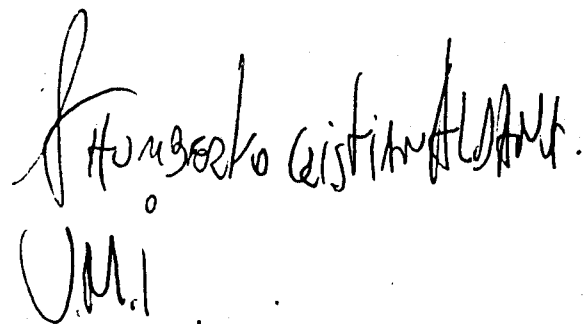 Humberto Cristian Aldana.
V.M.I